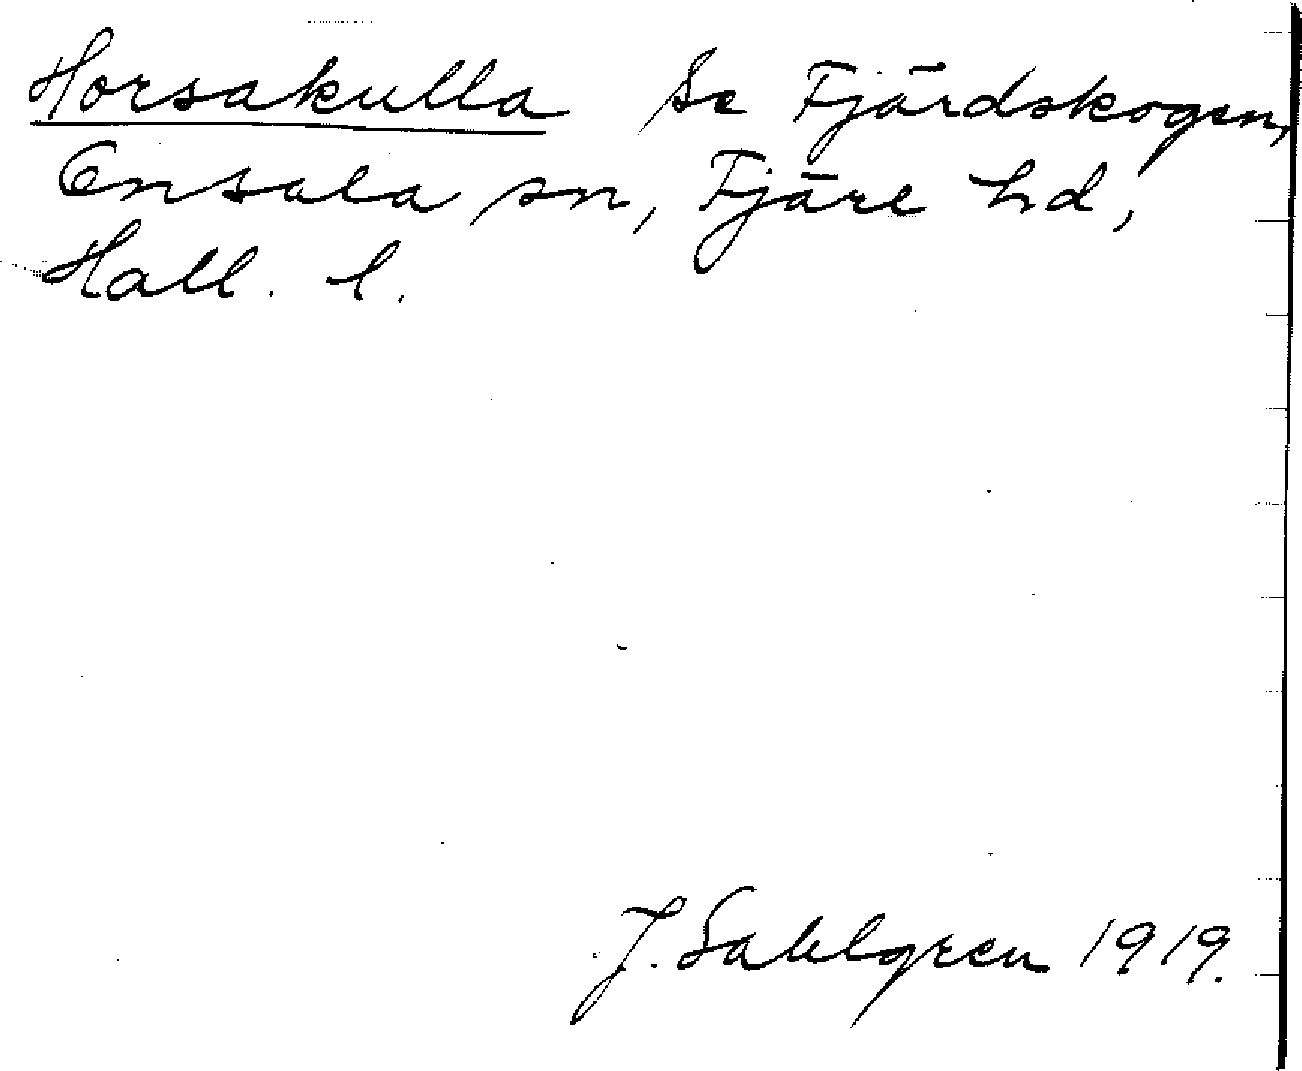 Horsakulla Se Fjärdskogen,
Onsala sn, Fjäre hd,
Hall. l.
J. Sahlgren 1919.